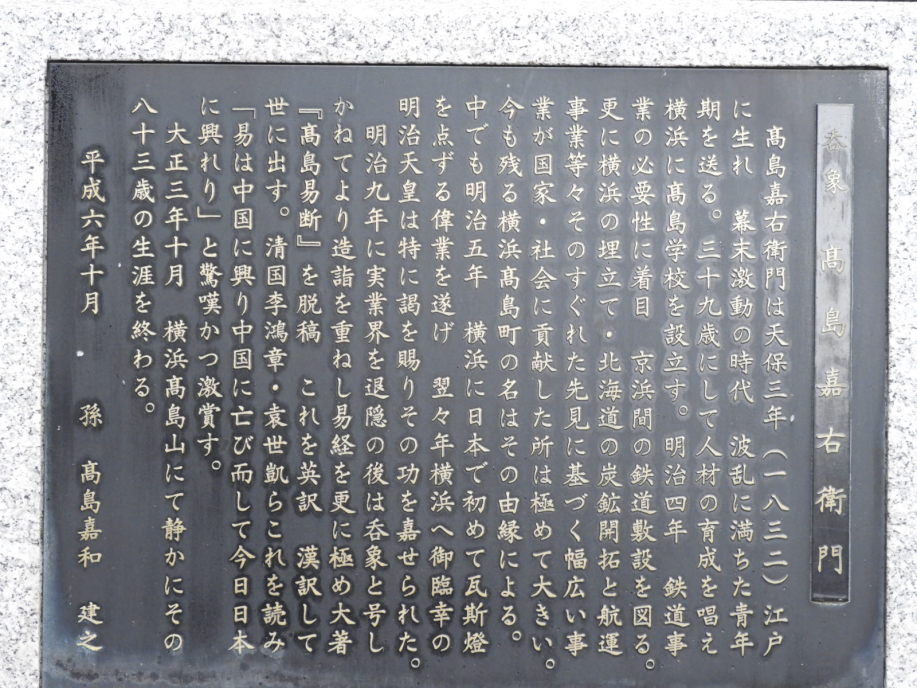 呑象 髙島嘉右衛門
髙島嘉右衛門は天保三年(一八三二)江戸
に生れ 幕末激動の時代 波乱に満ちた青年
期を送る。三十九歳にして人材の育成を唱え
横浜に髙島学校を設立す。明治四年 鉄道事
業の必要性に着目 京浜間の鉄道敷設を図る。
更に横浜の埋立て・北海道の炭鉱開拓と航運
事業等々そのすぐれた先見に基づく幅広い事
業が国家・社会に貢献した所は極めて大きい。
今も残る横浜髙島町の名はその由縁による。
中でも明治五年 横浜に日本で初めて瓦斯燈
を点ずる偉業を遂げ 翌々年横浜へ御臨幸の
明治天皇は特に謁を賜りその功を嘉せられた。
明治九年に実業界を退隠の後は呑象と号し
かねてより造詣を重ねし易経を更に極め大著
『髙島易断』を脱稿 これを英訳 漢訳して
世に出す。清国李鴻章・袁世凱らこれを読み
「易は中国に興り中国に亡び而して今日日本
に興れり」と驚嘆かつ激賞す。
大正三年十月 横浜髙島山にて静かにその
八十三歳の生涯を終わる。
平成六年十月 孫 髙島嘉和 建之